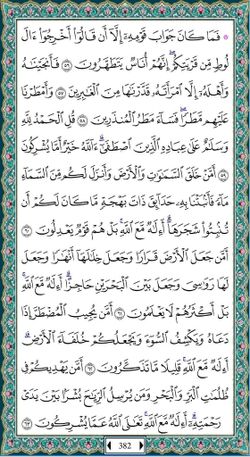 ۞ فَمَا كَانَ جَوَابَ قَوْمِهِۦٓ إِلَّآ أَن قَالُوٓا۟ أَخْرِجُوٓا۟ ءَالَ
لُوطٍ مِّن قَرْيَتِكُمْ ۖ إِنَّهُمْ أُنَاسٌ يَتَطَهَّرُونَ ٥٦ فَأَنجَيْنَٰهُ
وَأَهْلَهُۥٓ إِلَّا ٱمْرَأَتَهُۥ قَدَّرْنَٰهَا مِنَ ٱلْغَٰبِرِينَ ٥٧ وَأَمْطَرْنَا
عَلَيْهِم مَّطَرًا ۖ فَسَآءَ مَطَرُ ٱلْمُنذَرِينَ ٥٨ قُلِ ٱلْحَمْدُ لِلَّهِ
وَسَلَٰمٌ عَلَىٰ عِبَادِهِ ٱلَّذِينَ ٱصْطَفَىٰٓ ۗ ءَآللَّهُ خَيْرٌ أَمَّا يُشْرِكُونَ
٥٩ أَمَّنْ خَلَقَ ٱلسَّمَٰوَٰتِ وَٱلْأَرْضَ وَأَنزَلَ لَكُم مِّنَ ٱلسَّمَآءِ
مَآءً فَأَنۢبَتْنَا بِهِۦ حَدَآئِقَ ذَاتَ بَهْجَةٍ مَّا كَانَ لَكُمْ أَن
تُنۢبِتُوا۟ شَجَرَهَآ ۗ أَءِلَٰهٌ مَّعَ ٱللَّهِ ۚ بَلْ هُمْ قَوْمٌ يَعْدِلُونَ ٦٠
أَمَّن جَعَلَ ٱلْأَرْضَ قَرَارًا وَجَعَلَ خِلَٰلَهَآ أَنْهَٰرًا وَجَعَلَ
لَهَا رَوَٰسِىَ وَجَعَلَ بَيْنَ ٱلْبَحْرَيْنِ حَاجِزًا ۗ أَءِلَٰهٌ مَّعَ ٱللَّهِ ۚ
بَلْ أَكْثَرُهُمْ لَا يَعْلَمُونَ ٦١ أَمَّن يُجِيبُ ٱلْمُضْطَرَّ إِذَا
دَعَاهُ وَيَكْشِفُ ٱلسُّوٓءَ وَيَجْعَلُكُمْ خُلَفَآءَ ٱلْأَرْضِ ۗ
أَءِلَٰهٌ مَّعَ ٱللَّهِ ۚ قَلِيلًا مَّا تَذَكَّرُونَ ٦٢ أَمَّن يَهْدِيكُمْ فِى
ظُلُمَٰتِ ٱلْبَرِّ وَٱلْبَحْرِ وَمَن يُرْسِلُ ٱلرِّيَٰحَ بُشْرًۢا بَيْنَ يَدَىْ
رَحْمَتِهِۦٓ ۗ أَءِلَٰهٌ مَّعَ ٱللَّهِ ۚ تَعَٰلَى ٱللَّهُ عَمَّا يُشْرِكُونَ ٦٣
382